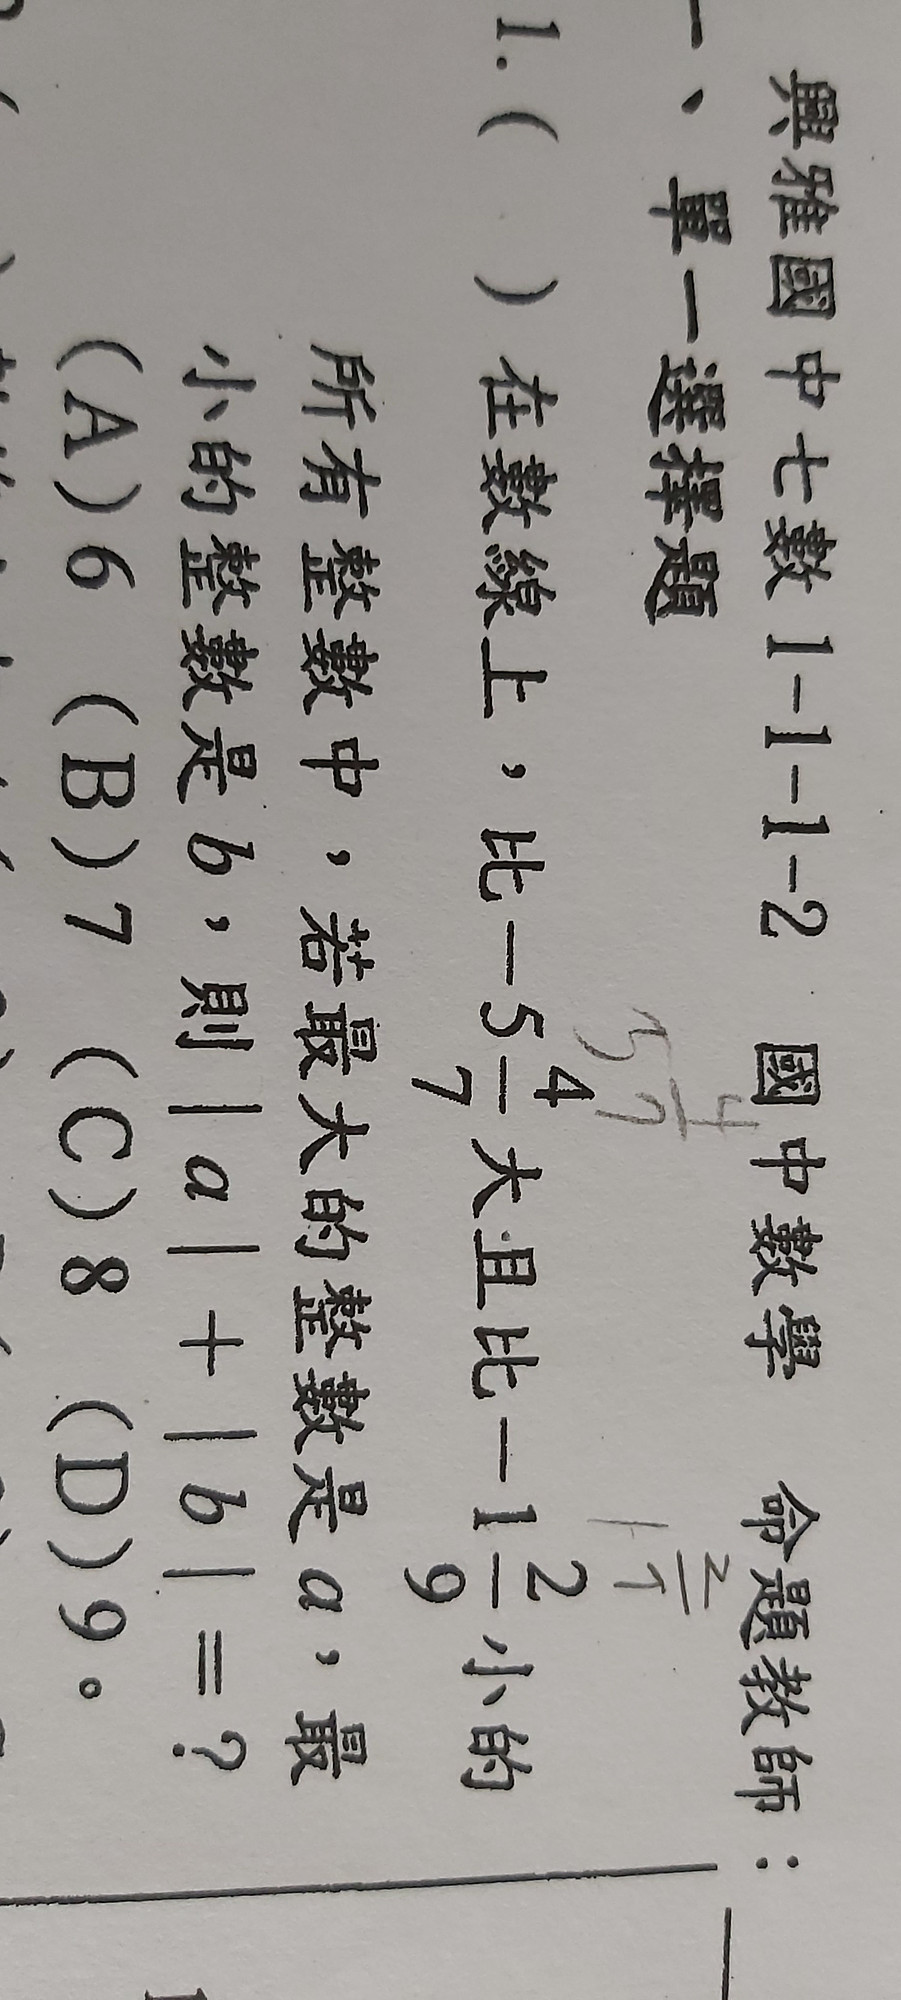 興雅國中七數 1-1-1-2 國中數學 命題教師：
一、單一選擇題
5 4/7
1 2/9
1.( )在數線上，比－5 4/7 大且比－1 2/9 小的
所有整數中，若最大的整數是 a，最
小的整數是 b，則｜a｜＋｜b｜＝？
(A)6 (B)7 (C)8 (D)9。